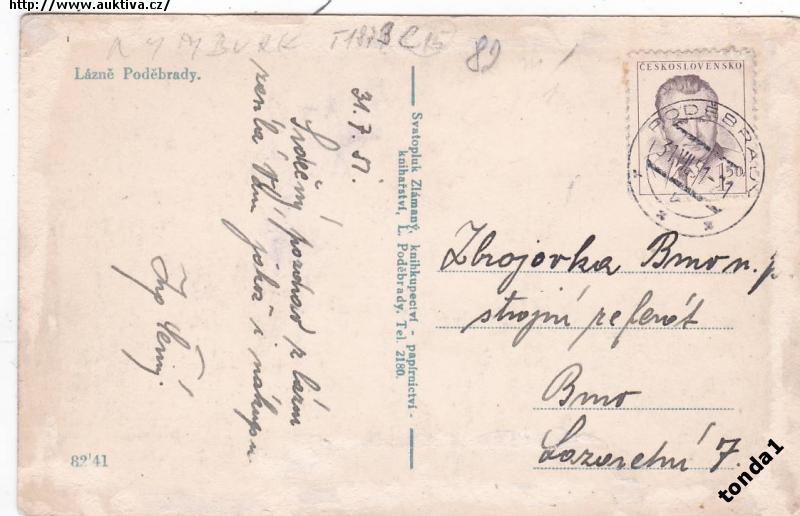 http://www.auktiva.cz/
NYMBURK
89
Lázně Poděbrady.
ČESKOSLOVENSKO
1,50
PODĚBRADY
31.VII.51-17
31.7.51.
Srdečný pozdrav z lázní
Vám jakož i nákupu.
Svatopluk Zlámaný, knihkupectví - papírnictví -
knihařství, L. Poděbrady, Tel. 2180.
Zbrojovka Brno n. p.
strojní referát
Brno
Lazaretní 7.
82'41
tonda1